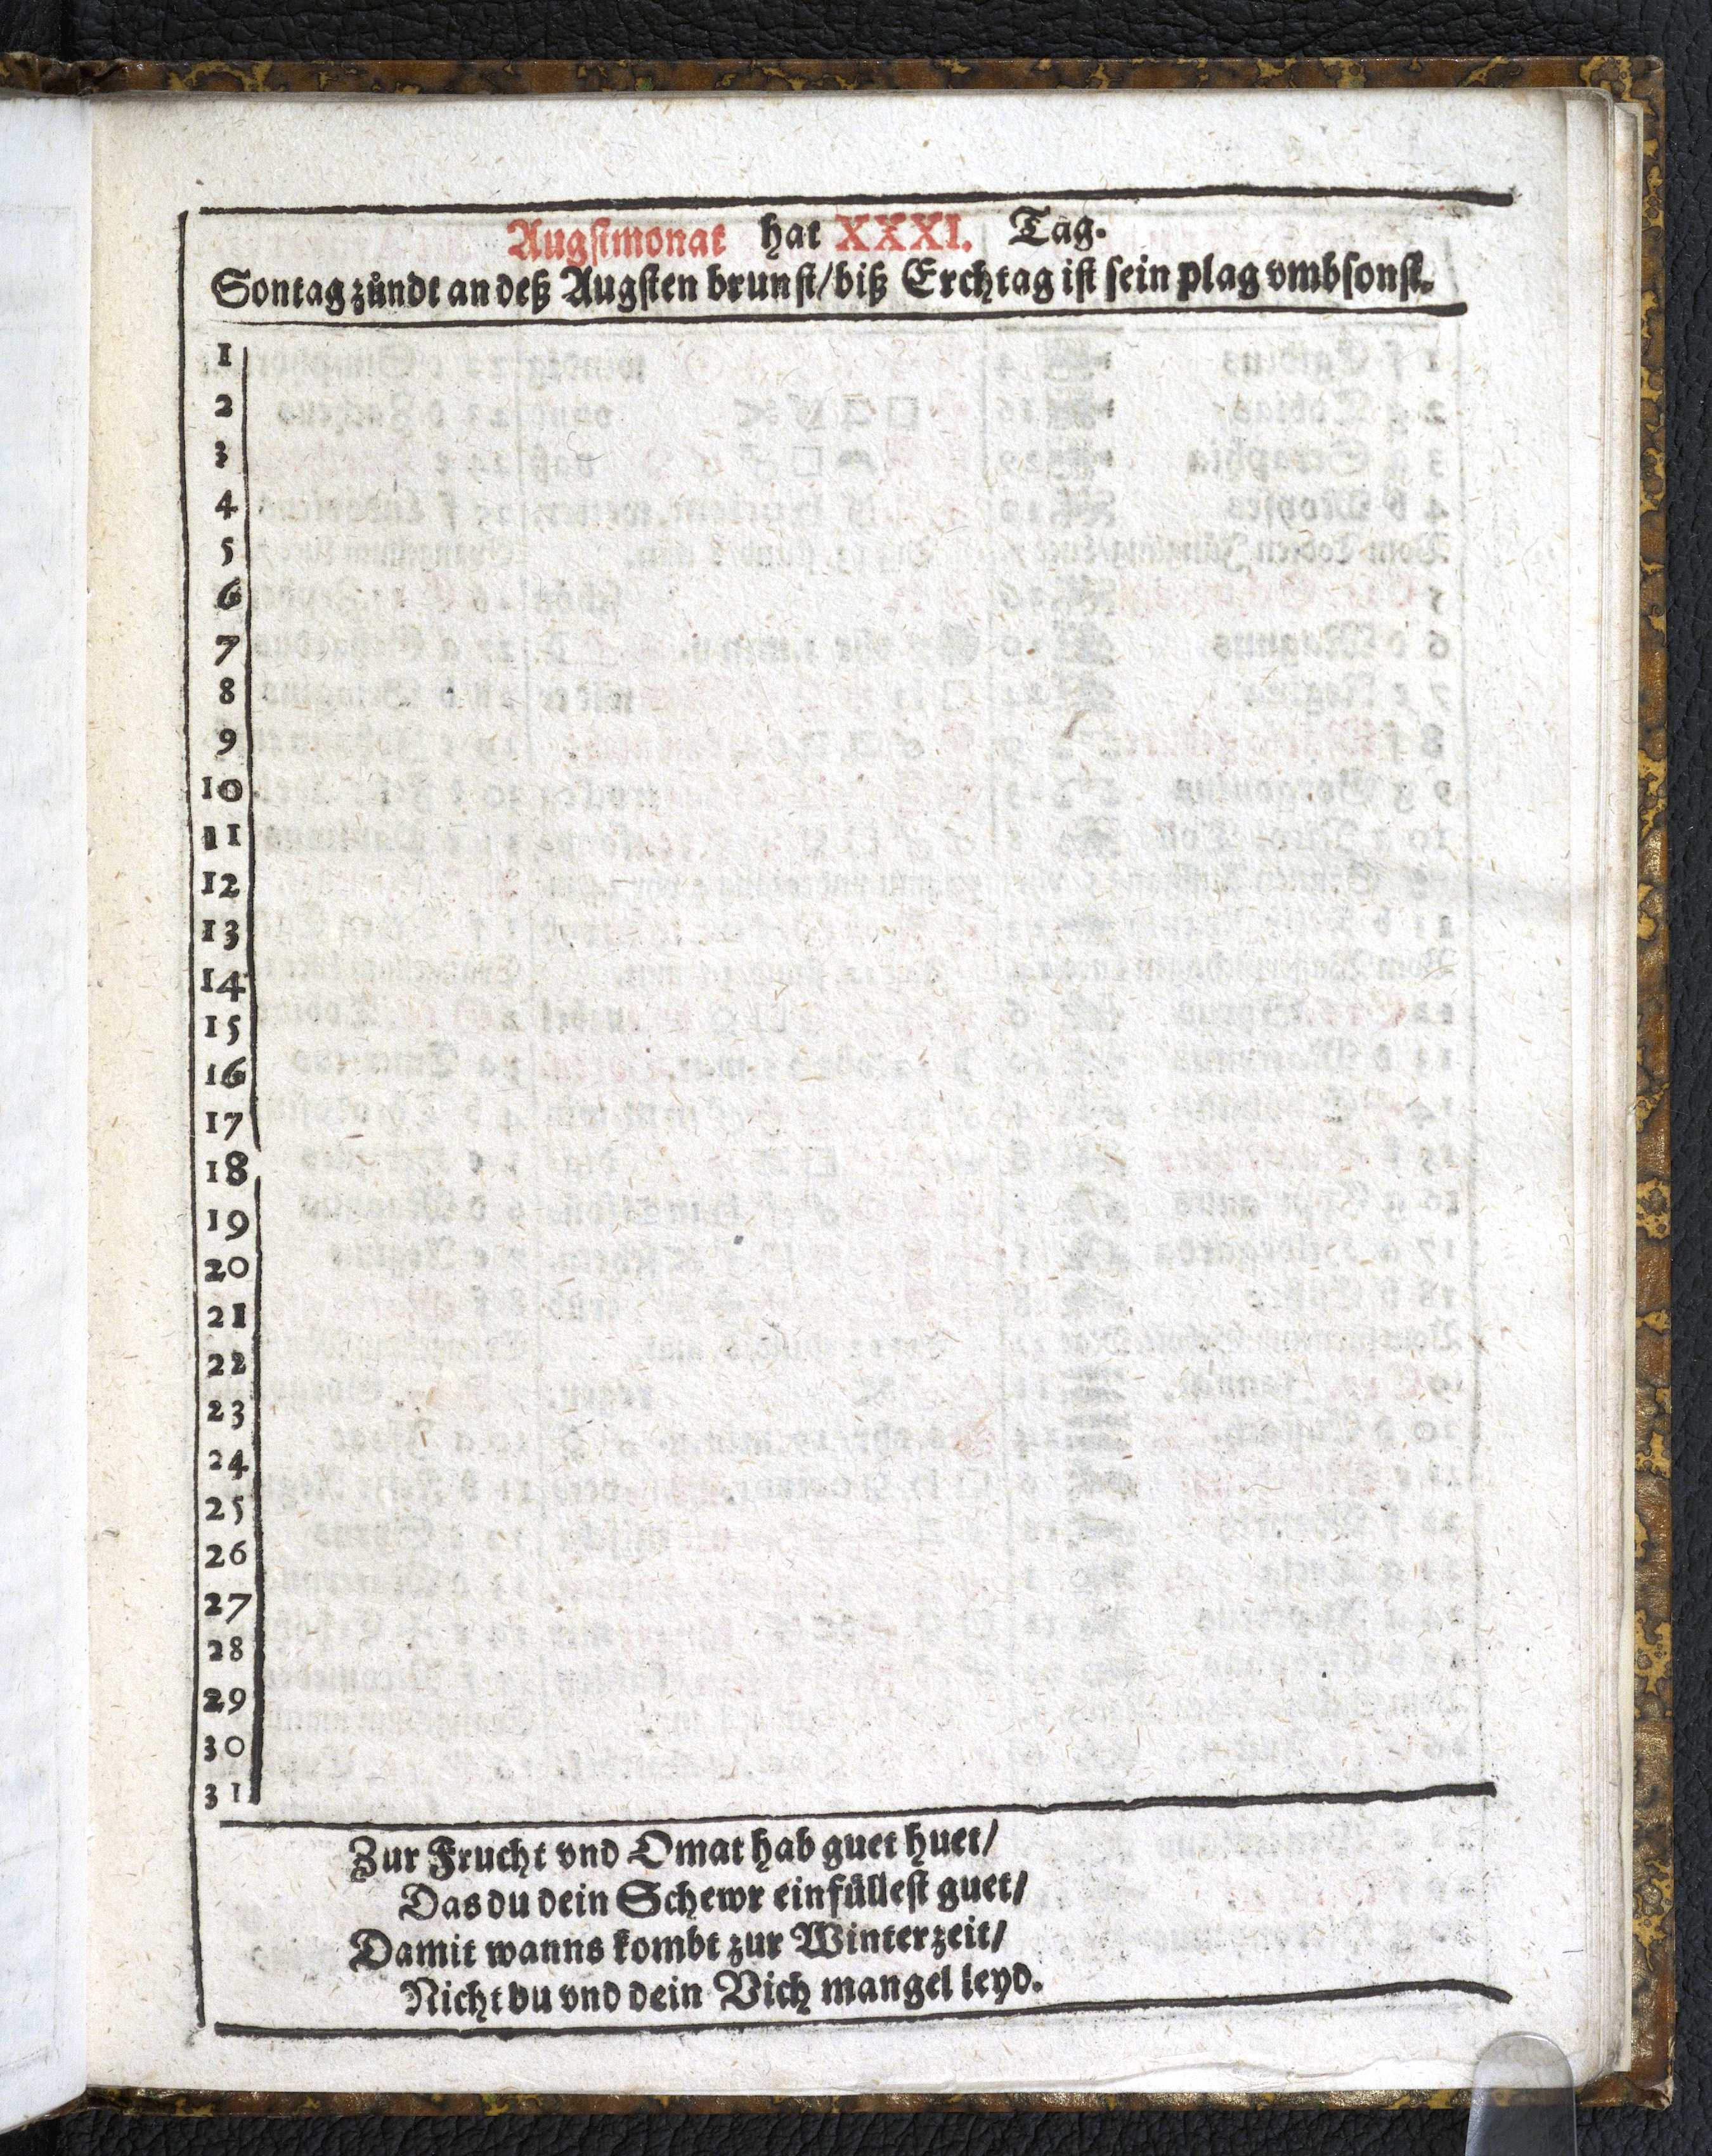 Augstmonat hat XXXI. Tag.
Sontag zůndt an deß Augsten brunst/biß Erchtag ist sein plag vmbsonst.
1
2
3
4
5
6
7
8
9
10
11
12
13
14
15
16
17
18
19
20
21
22
23
24
25
26
27
28
29
30
31
Zur Frucht vnd Omat hab guet huet/
Das du dein Schewr einfüllest guet/
Damit wanns kombt zur Winterzeit/
Nicht du vnd dein Vich mangel leyd.